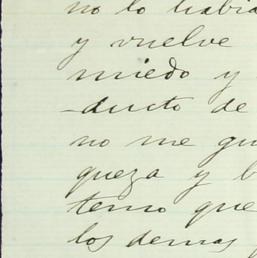 no lo habia
y vuelve
miedo y
-ducto de
no me gu
queza y b
temo que
los demas